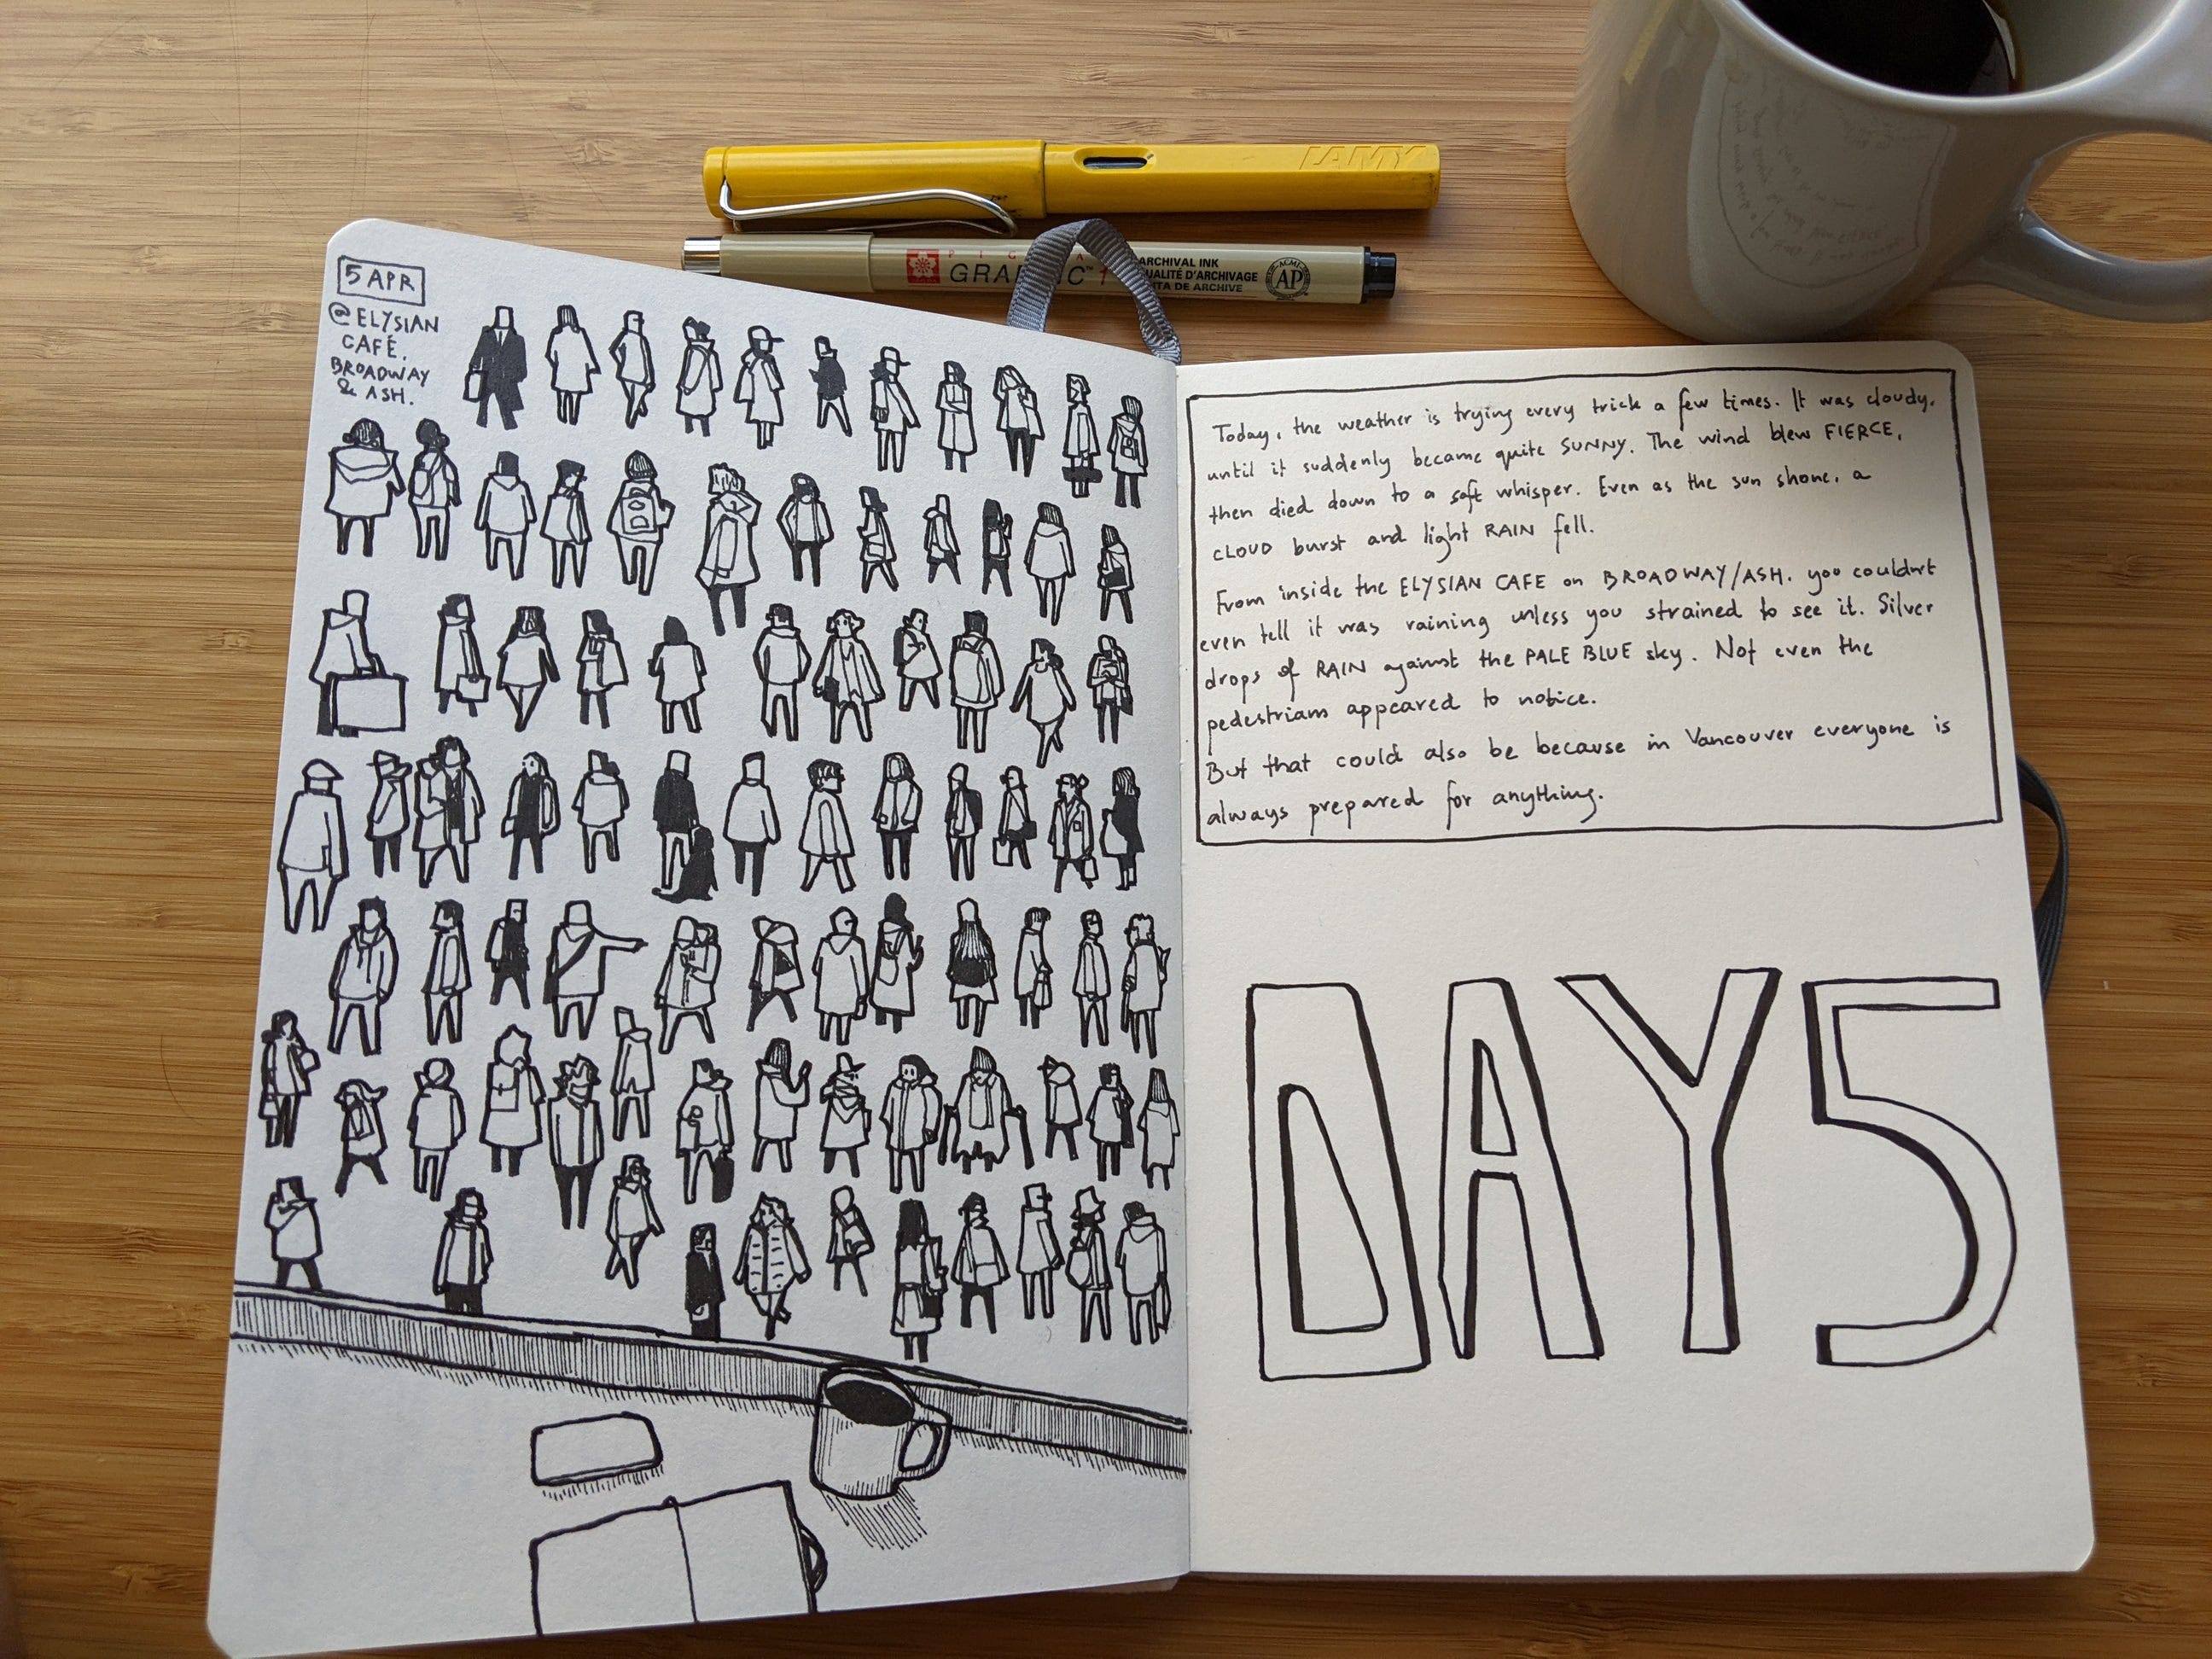 LAMY
GRAPHIC 1
ARCHIVAL INK
QUALITÉ D'ARCHIVAGE
TA DE ARCHIVE
ACMI
AP
5 APR
@ ELYSIAN
CAFÉ,
BROADWAY
& ASH.
Today, the weather is trying every trick a few times. It was cloudy,
until it suddenly became quite SUNNY. The wind blew FIERCE,
then died down to a soft whisper. Even as the sun shone, a
CLOUD burst and light RAIN fell.
From inside the ELYSIAN CAFE on BROADWAY/ASH, you couldn't
even tell it was raining unless you strained to see it. Silver
drops of RAIN against the PALE BLUE sky. Not even the
pedestrians appeared to notice.
But that could also be because in Vancouver everyone is
always prepared for anything.
DAY 5